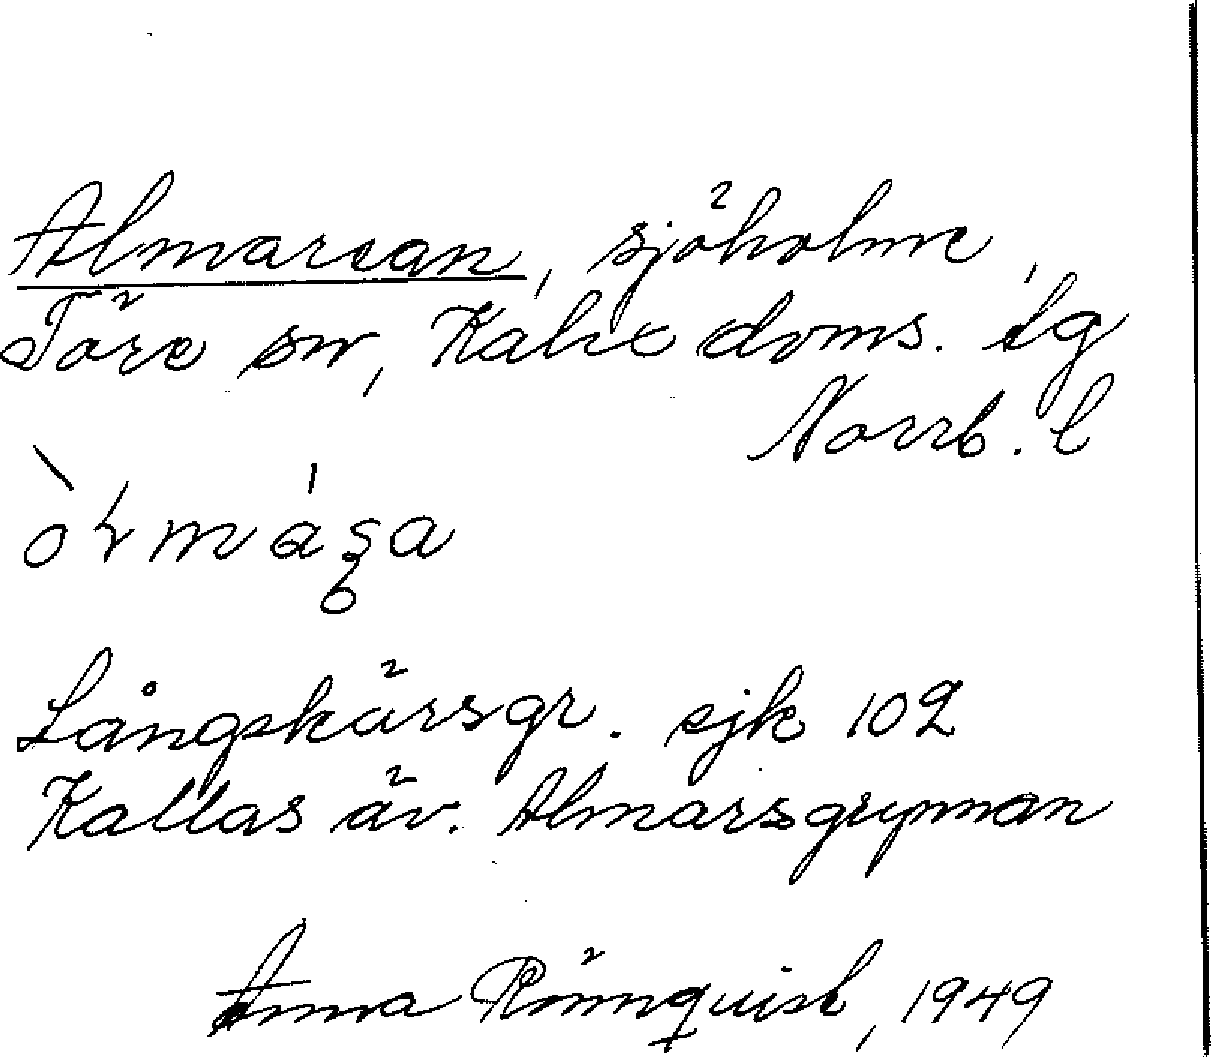 Almarsan, sjöholme,
Töre sn, Kalix doms. tg
Norrb. l
Långskärsgr. sjk 102
Kallas äv. Almarsgrynnan
Anna Rönnquist, 1949